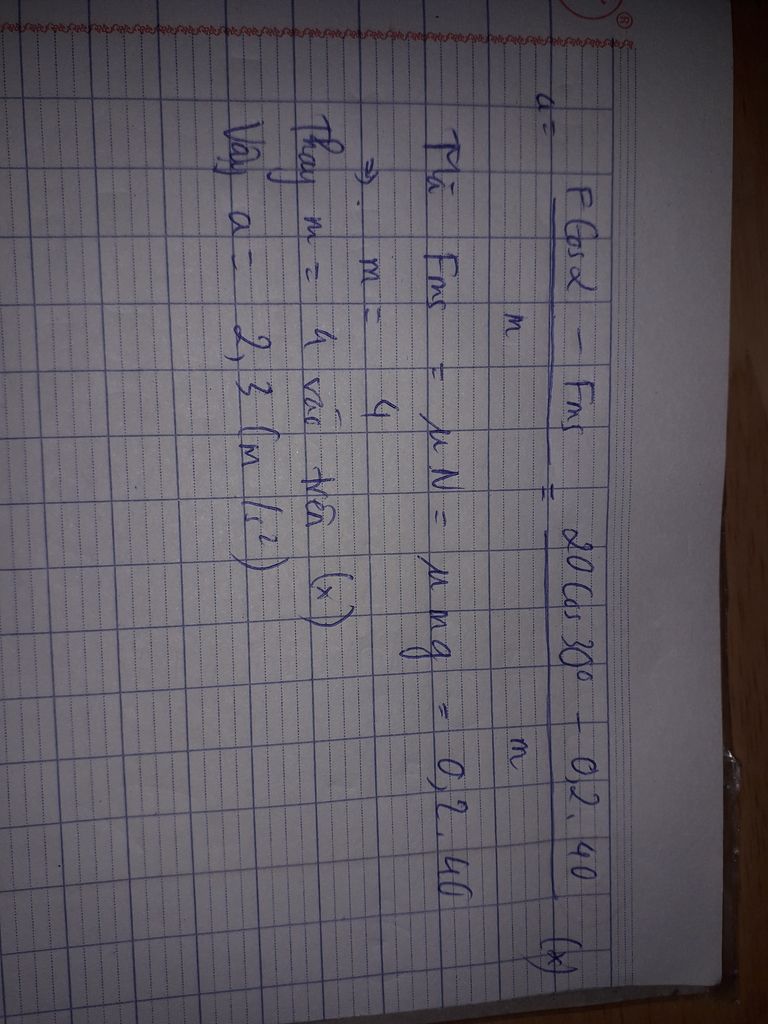 ®
a = F Cosα - Fms / m = 20 Cos 30° - 0,2.40 / m (x)
Mà Fms = μN = μ mg = 0,2.40
⇒. m = 4
Thay m = 4 vào trên (x)
Vậy a = 2,3 (m/s²)